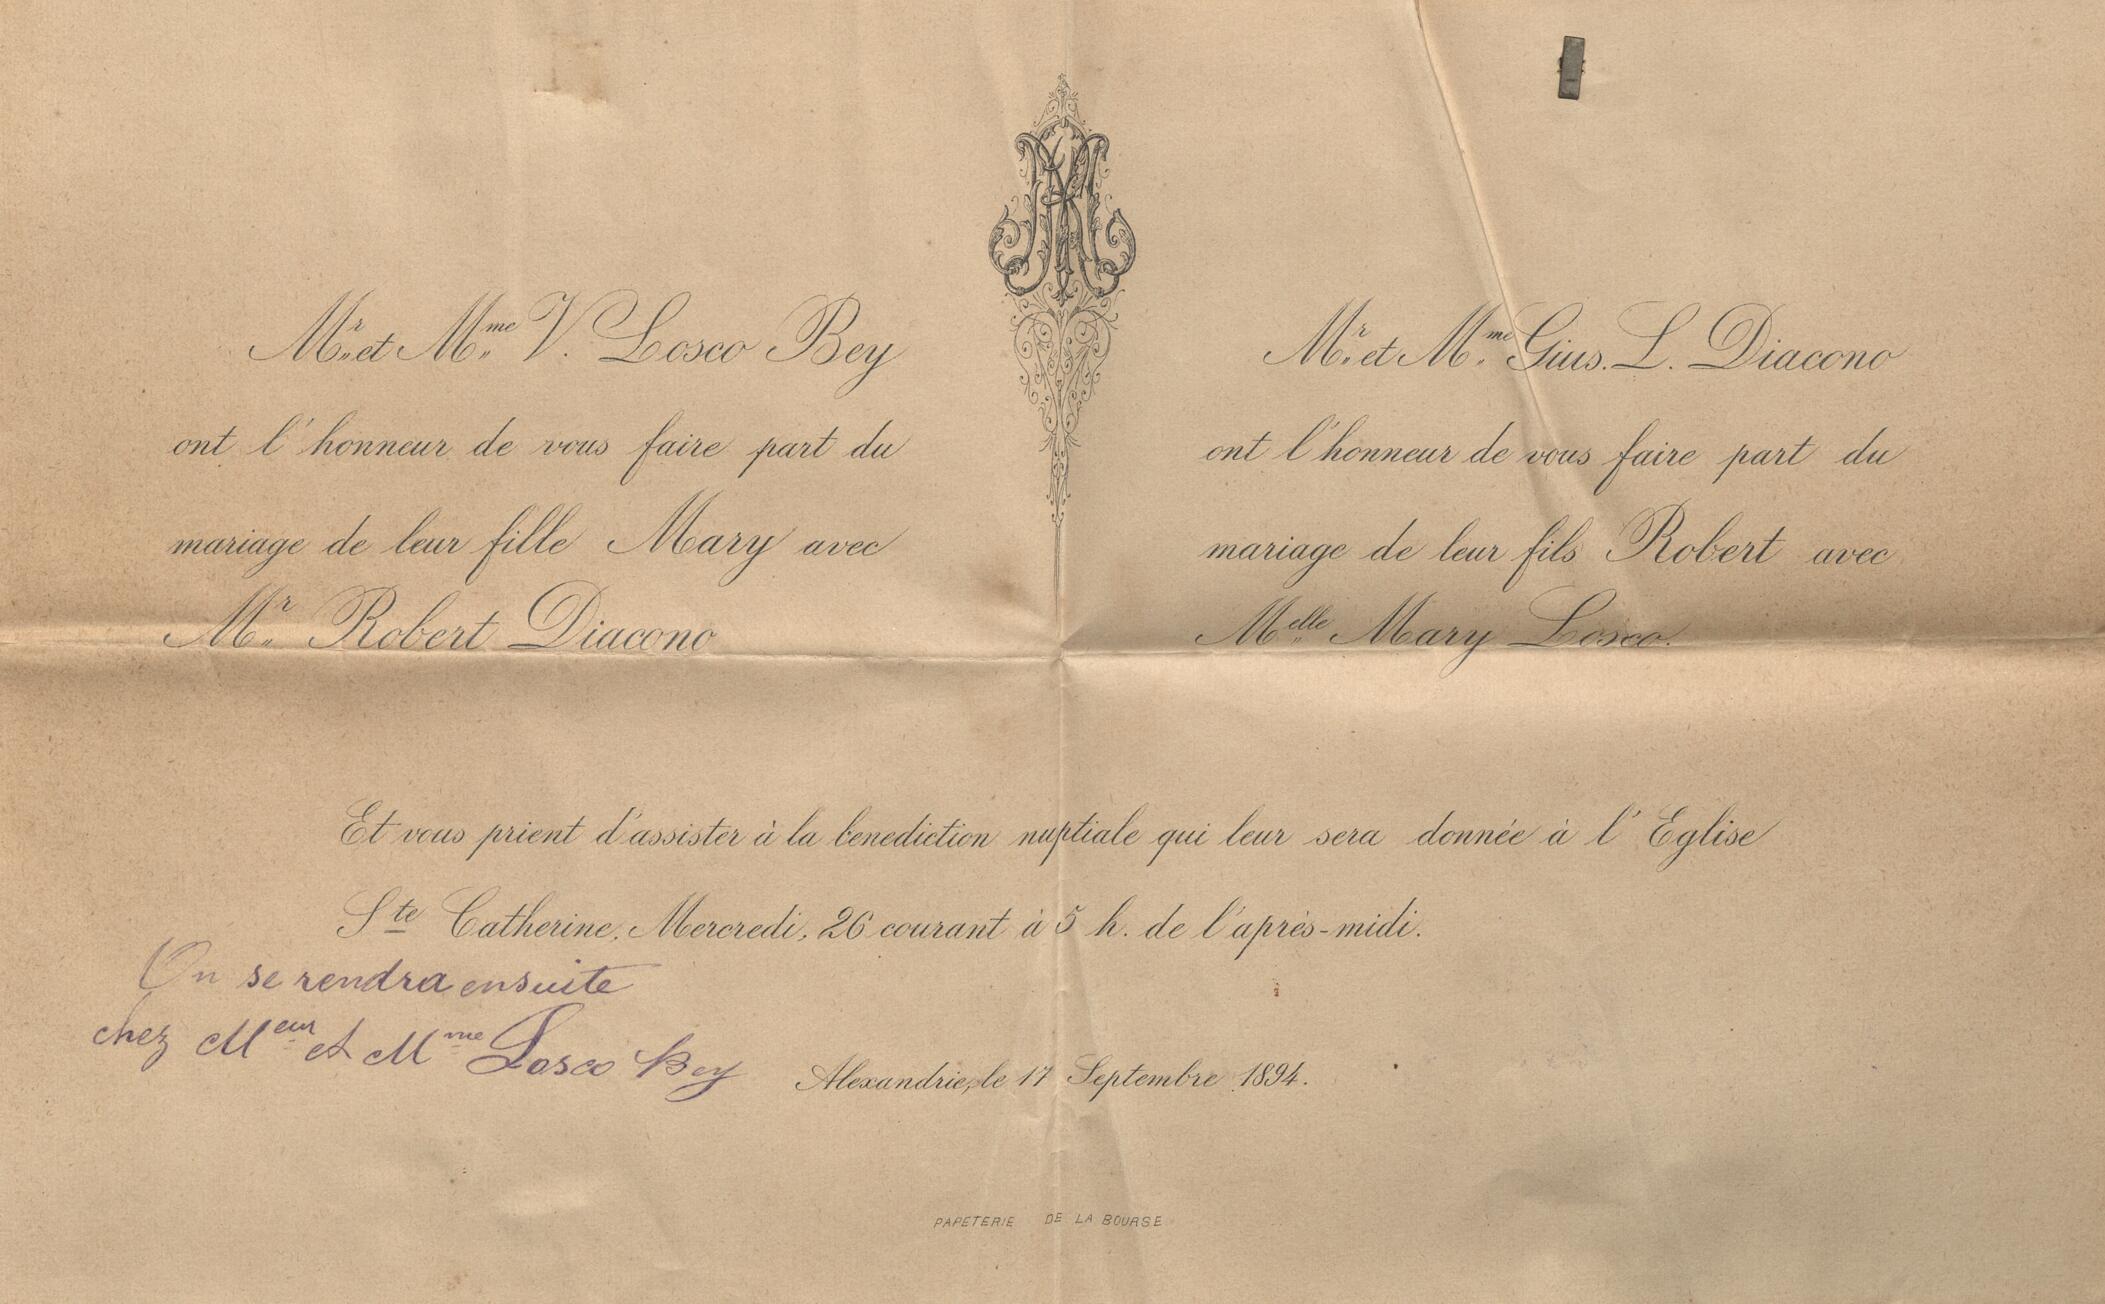 MR
Mr. et Mme V. Losco Bey
ont l'honneur de vous faire part du
mariage de leur fille Mary avec
Mr. Robert Diacono
Mr. et Mme Gius. L. Diacono
ont l'honneur de vous faire part du
mariage de leur fils Robert avec
Melle Mary Losco.
Et vous prient d'assister à la benediction nuptiale qui leur sera donnée à l'Eglise
Ste Catherine, Mercredi, 26 courant à 5 h. de l'après-midi.
On se rendra ensuite
chez Meur et Mme Losco Bey
Alexandrie, le 17 Septembre 1894.
PAPETERIE DE LA BOURSE